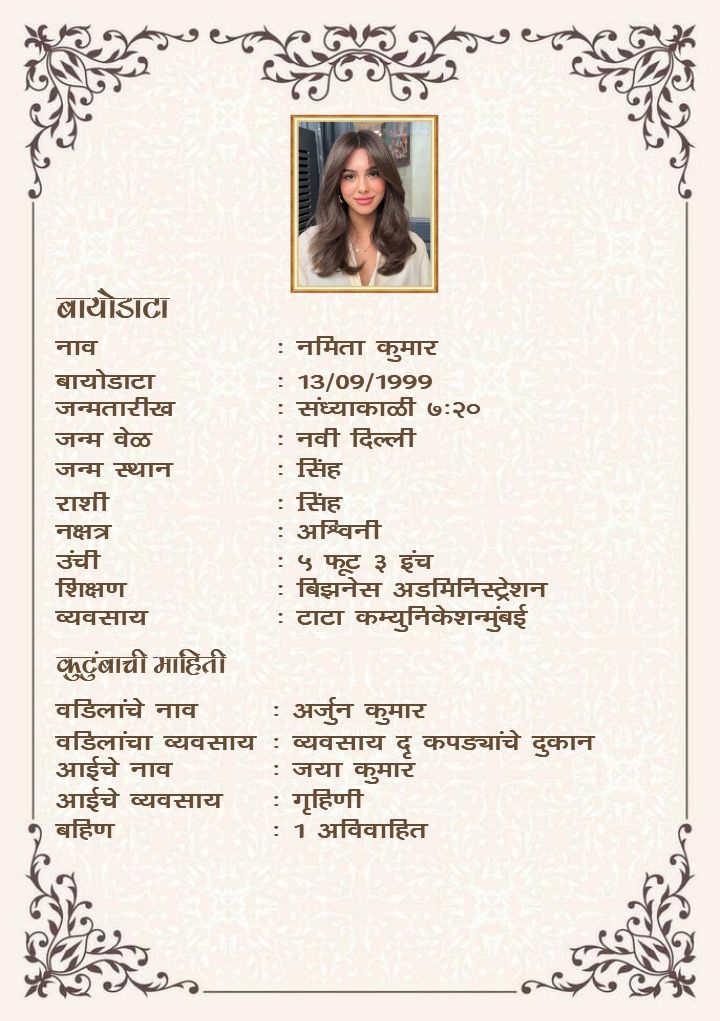 बायोडाटा
नाव : नमिता कुमार
बायोडाटा : 13/09/1999
जन्मतारीख : संध्याकाळी ७:२०
जन्म वेळ : नवी दिल्ली
जन्म स्थान : सिंह
राशी : सिंह
नक्षत्र : अश्विनी
उंची : ५ फूट ३ इंच
शिक्षण : बिझनेस अडमिनिस्ट्रेशन
व्यवसाय : टाटा कम्युनिकेशन्मुंबई
कुटुंबाची माहिती
वडिलांचे नाव : अर्जुन कुमार
वडिलांचा व्यवसाय : व्यवसाय दृ कपड्यांचे दुकान
आईचे नाव : जया कुमार
आईचे व्यवसाय : गृहिणी
बहिण : 1 अविवाहित